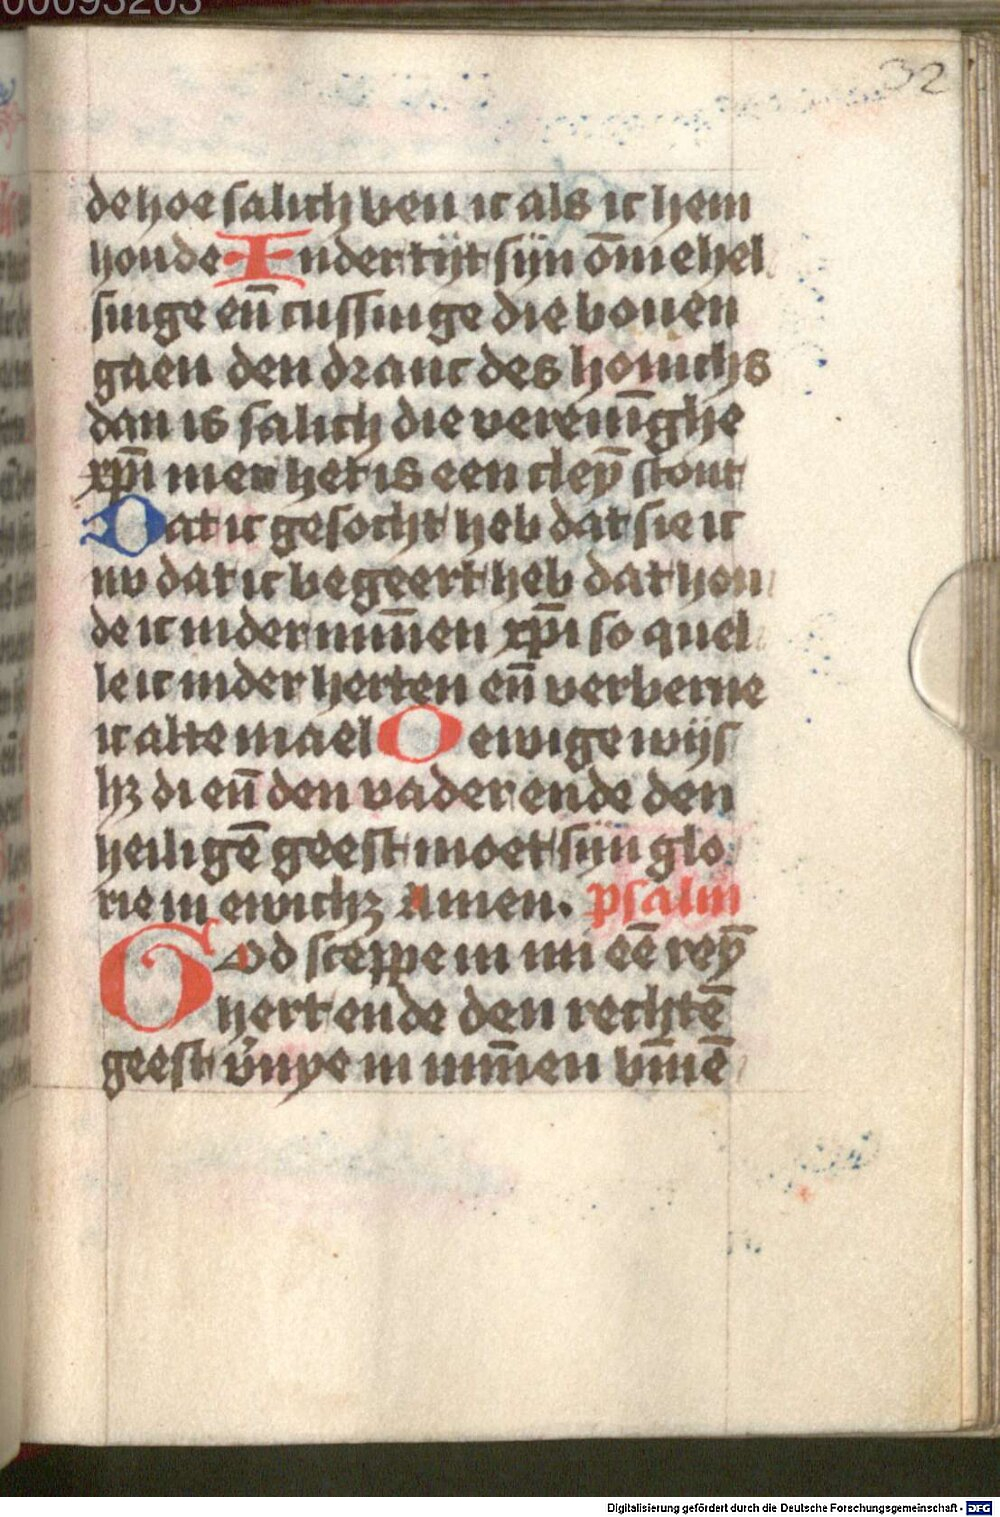 00093203
32
de hoe salich ben ic als ic hem
houde In der tijt sijn om̄ehel
singe en̄ cussinge die bouen
gaen den dranc des honichs
dan is salich die vereni̅ghe
xp̄i mer het is een cley̅ stont
Dat ic gesocht heb dat sie ic
nv dat ic begeert heb dat hou
de ic in der mi̅nen xp̄i so quel
le ic in der herten en̄ verberne
ic alte mael O ewige wijs
hꝫ di en̄ den vader ende den
heilige̅ geest moet sijn glo
rie in ewichꝫ Amen. psalm
God sceppe in mi ee̅ rey̅
hert ende den rechte̅
geest v̓nye in mi̅nen bi̅ne̅
Digitalisierung gefördert durch die Deutsche Forschungsgemeinschaft - DFG